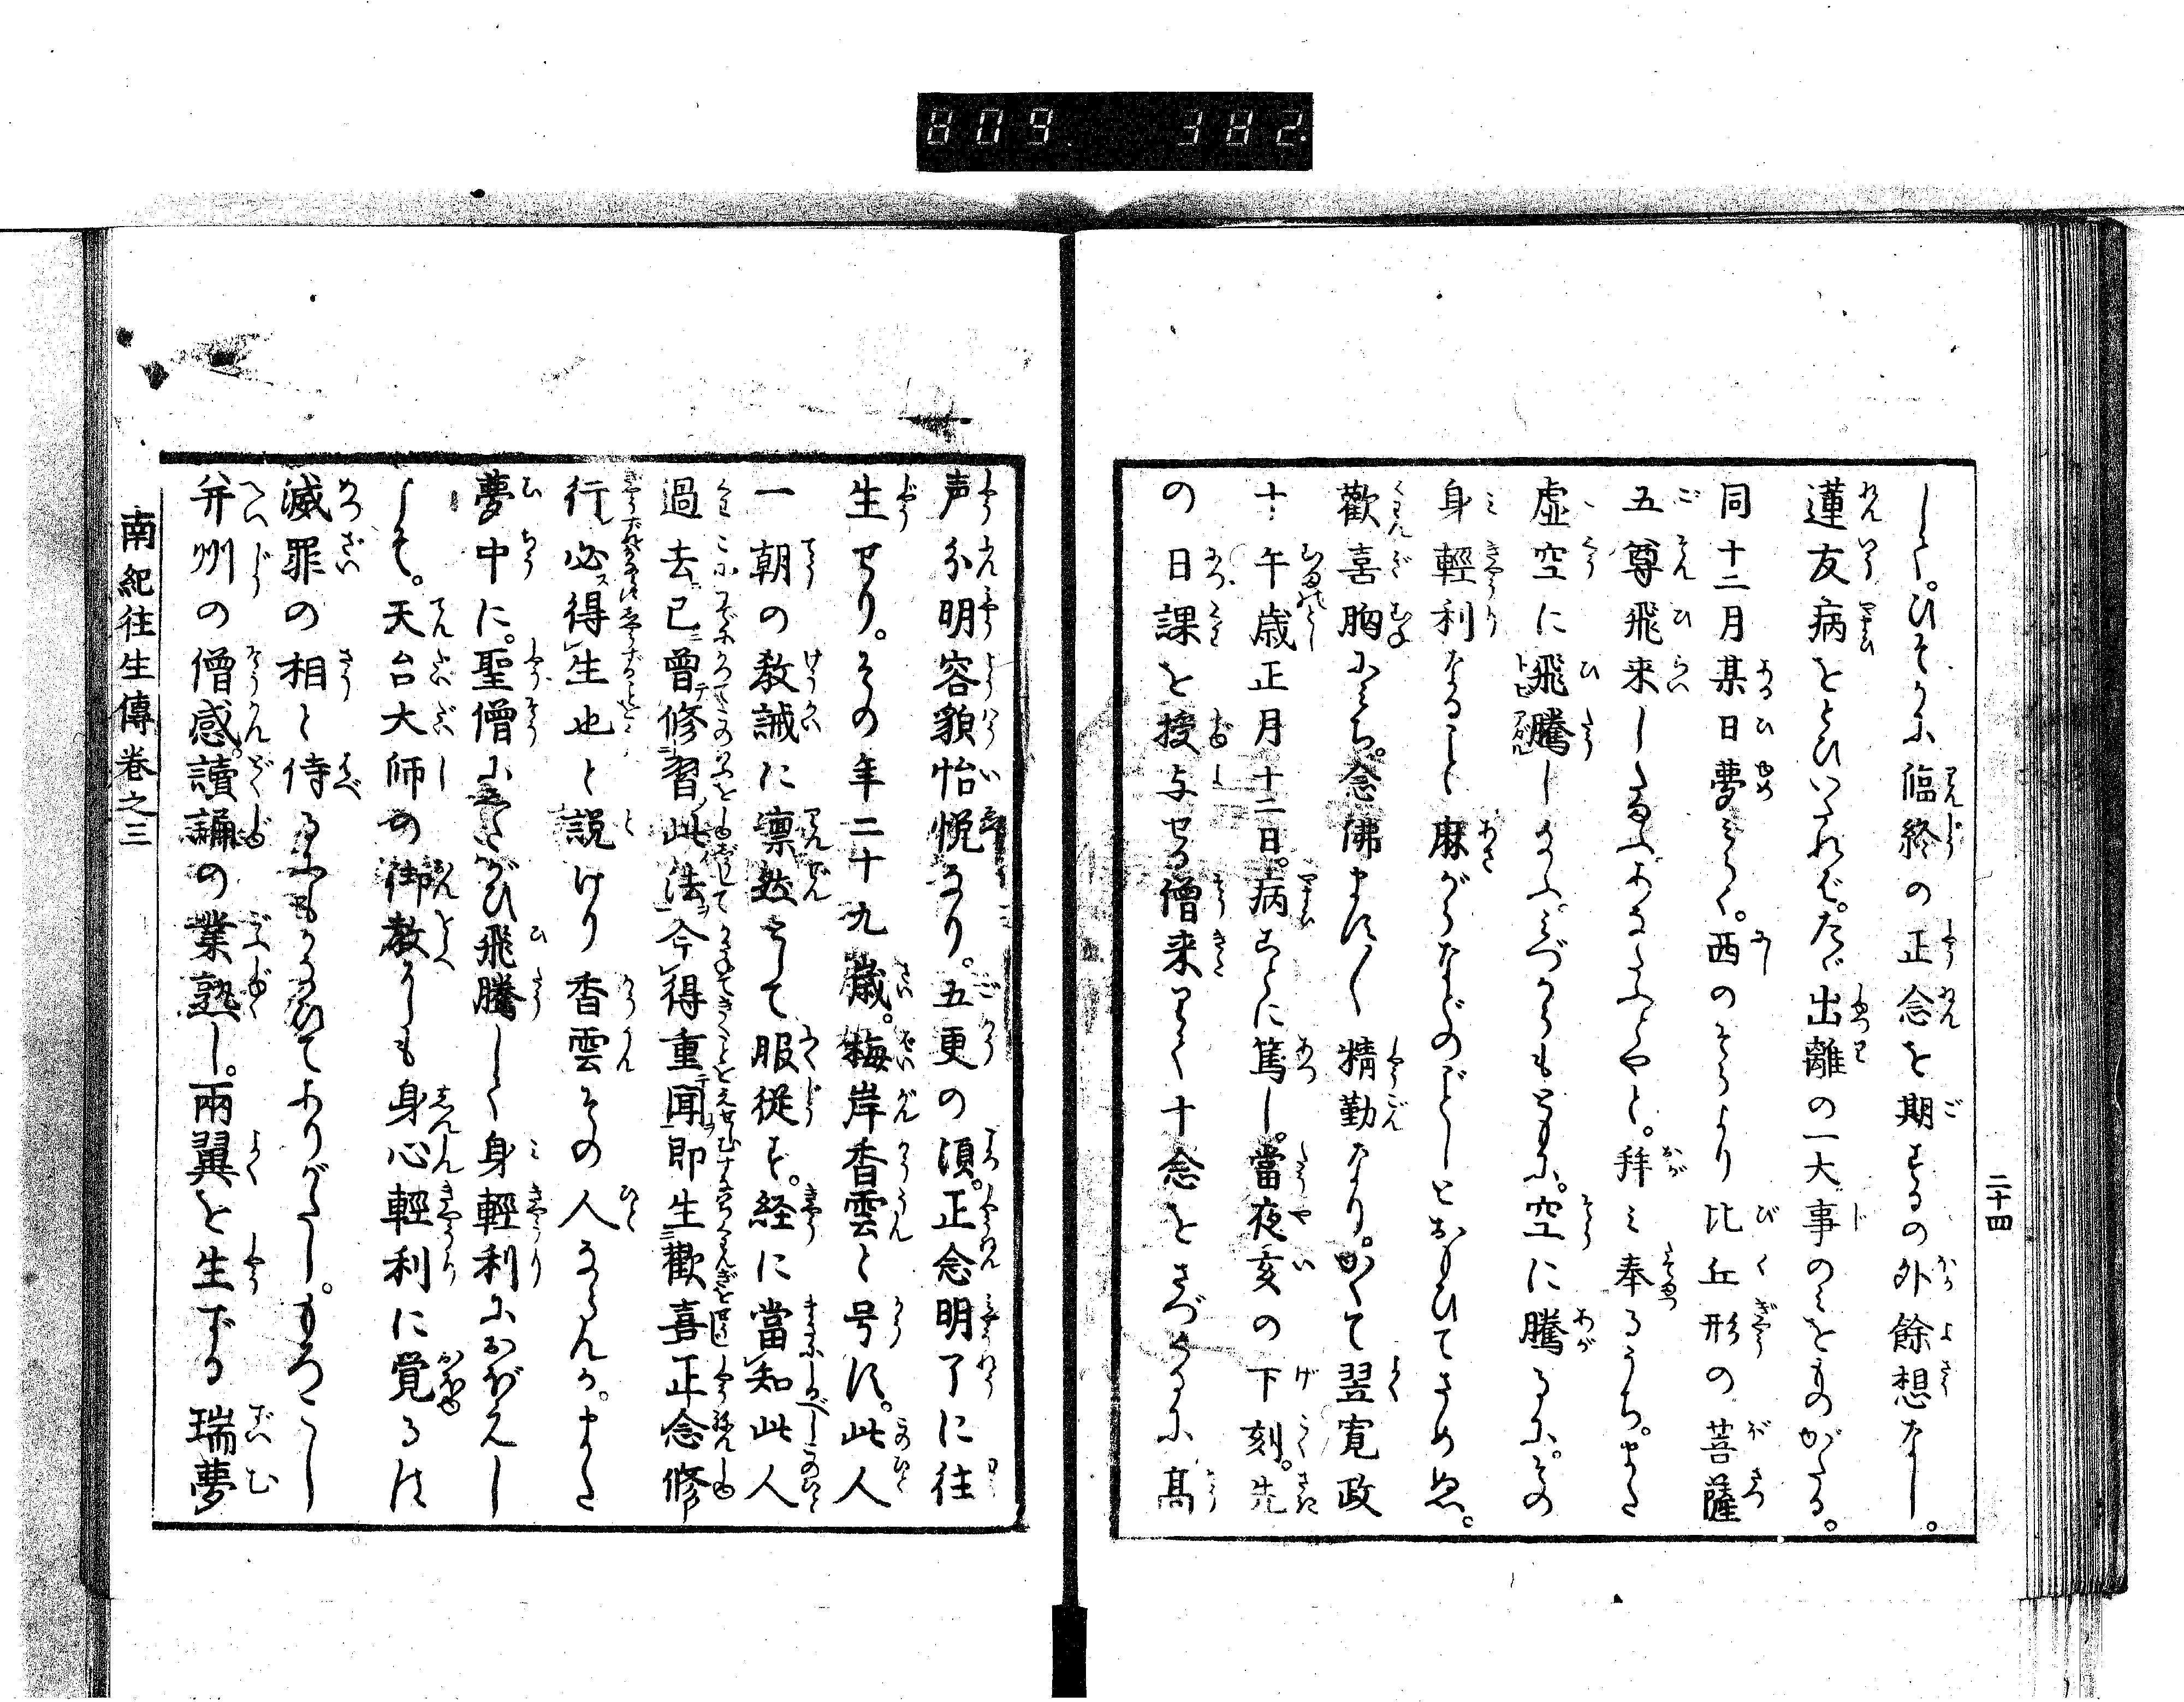 809 382
二十四
して。ひそかに臨終の正念を期するの外餘想なし。
蓮友病をとひいたれば。たゞ出離の一大事のみをものがたる。
同十二月某日夢みらく。西のそらより比丘形の菩薩
五尊飛来したまふ
とやと。拜み奉るうち。また
虚空に飛騰したまふ。みづからもともに。空に騰るに。その
身輕利なること麻がらなどのごとしとおもひてさめぬ。
歡喜胸にみち。念佛ます〳〵精勤なり。かくて翌寛政
十午歳正月十二日。病ことに篤し。當夜亥の下刻。先
の日課を授与せる僧来りて十念をさづくるに高
声分明容貌怡悦なり。五更の頃。正念明了に往
生せり。その年二十九歳。梅岸香雲と号す。此人
一朝の教誡に凛然として服従す。経に當知此人
過去已曾修習此法今得重聞即生歡喜正念修
行必得生也と説けり香雲その人ならんか。また
夢中に。聖僧にしたがひ飛騰して身輕利におぼえし
して。天台大師の御教にも身心輕利に覚るは
滅罪の相と侍るにもかなひてありがたし。もろこし
并州の僧感讀誦の業熟し。兩翼を生ずる瑞夢
南紀往生傳巻之三